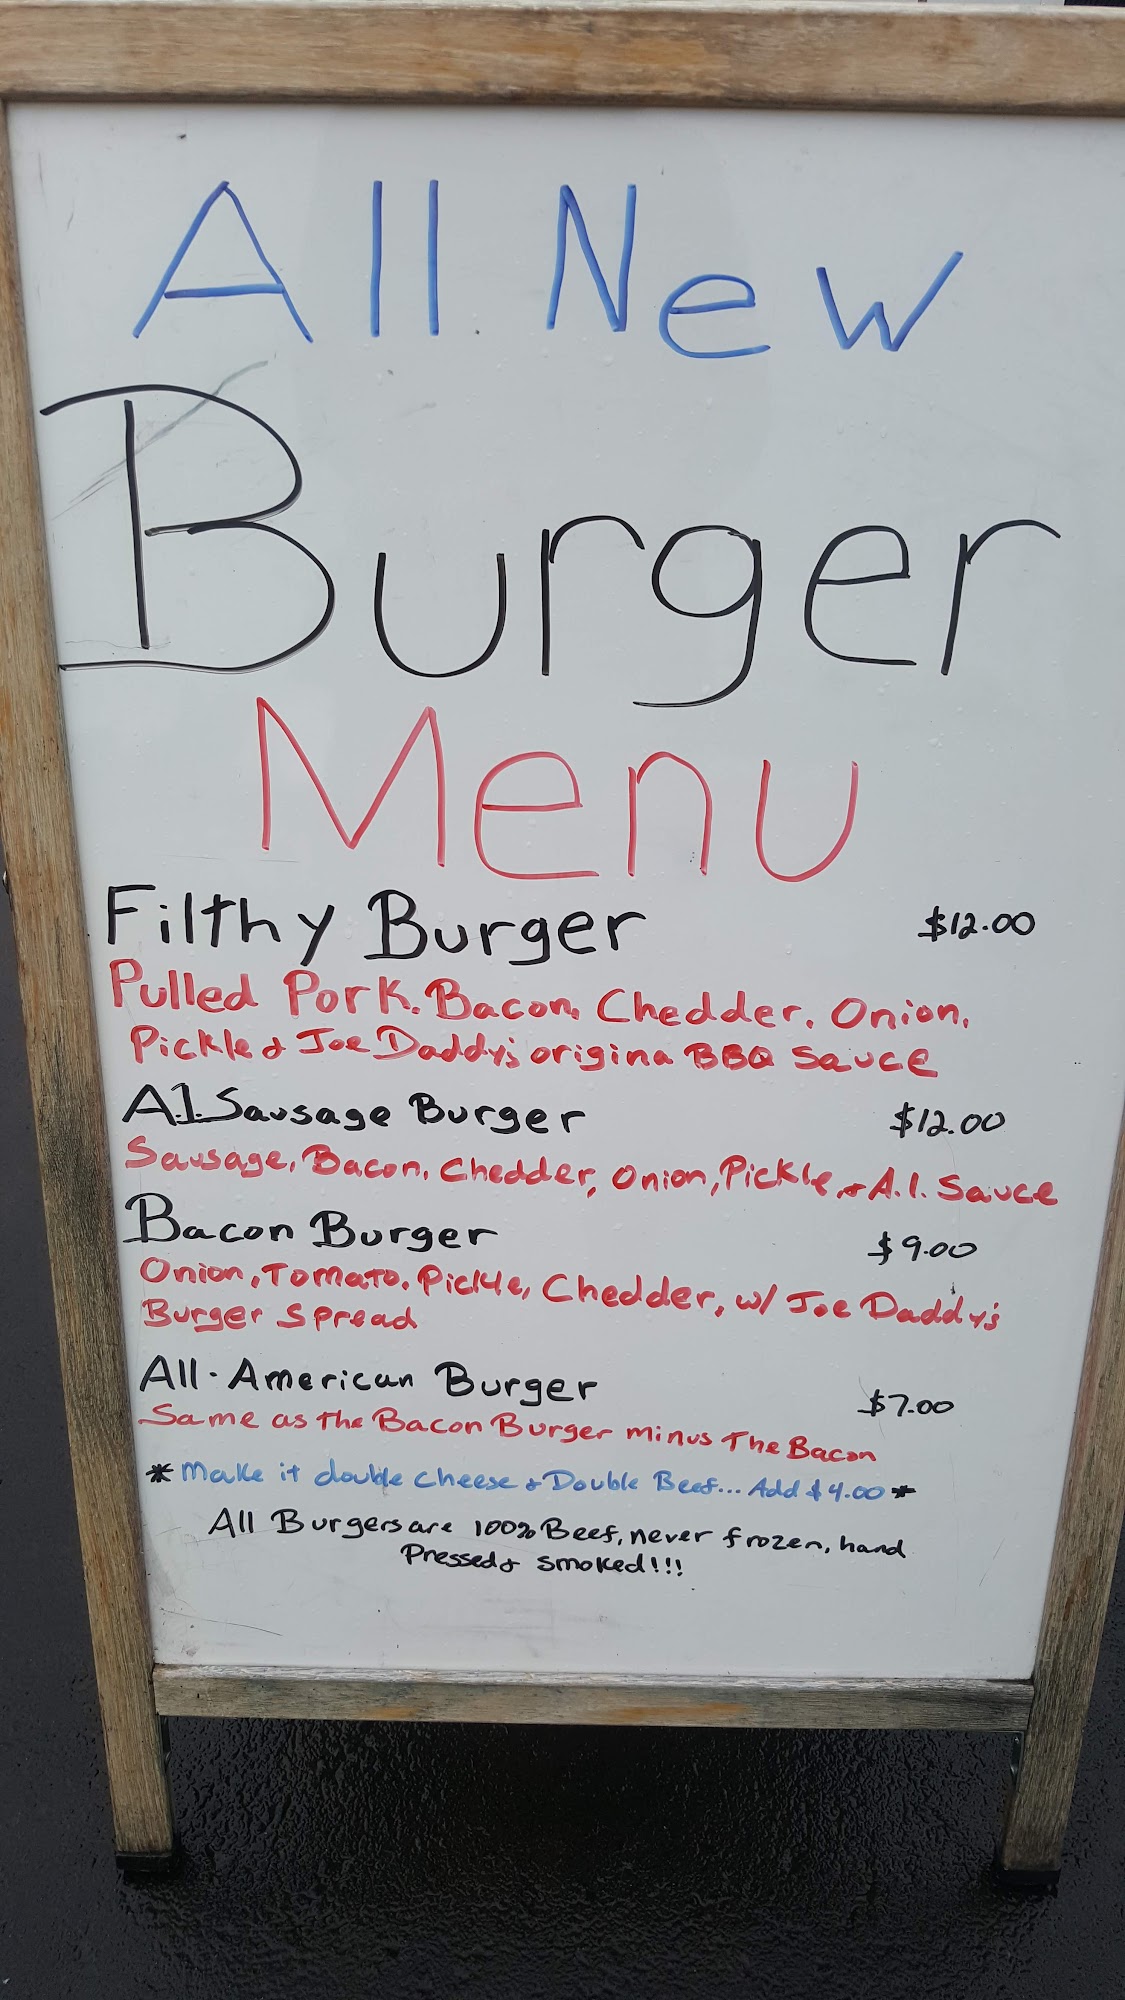 All New
Burger
Menu
Filthy Burger $12.00
Pulled Pork, Bacon, Chedder, Onion,
Pickle & Joe Daddy's origina BBQ Sauce
A.1. Sausage Burger $12.00
Sausage, Bacon, Chedder, Onion, Pickle, & A.1. Sauce
Bacon Burger $9.00
Onion, Tomato, Pickle, Chedder, w/ Joe Daddy's
Burger Spread
All-American Burger $7.00
Same as the Bacon Burger minus The Bacon
* Make it double cheese & Double Beef... Add $4.00 *
All Burgers are 100% Beef, never frozen, hand
Pressed & smoked!!!